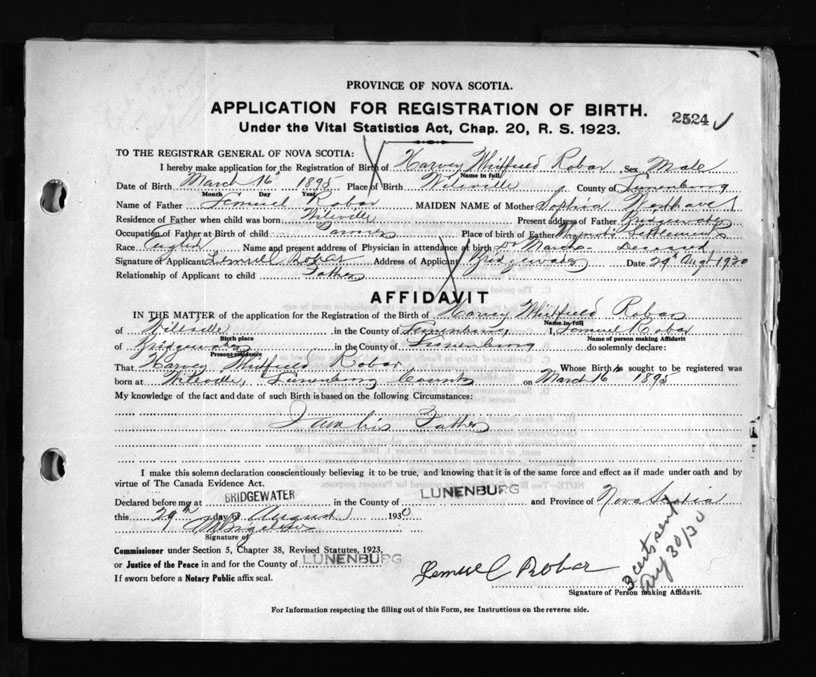 PROVINCE OF NOVA SCOTIA.
APPLICATION FOR REGISTRATION OF BIRTH.
2524
Under the Vital Statistics Act, Chap. 20, R. S. 1923.
TO THE REGISTRAR GENERAL OF NOVA SCOTIA:
I hereby make application for the Registration of Birth of Harvey Whitfield Robar Sex Male
Name in full
Date of Birth March 16 1895 Place of Birth Wileville County of Lunenburg
Month Day Year
Name of Father Lemuel Robar MAIDEN NAME of Mother Sophia
Residence of Father when child was born Wileville Present address of Father Bridgewater
Occupation of Father at Birth of child Place of birth of Father Settlement
Race English Name and present address of Physician in attendance at birth Dr March - Deceased
Signature of Applicant Lemuel Robar Address of Applicant Bridgewater Date 29th Aug 1930
Relationship of Applicant to child Father
AFFIDAVIT
IN THE MATTER of the application for the Registration of the Birth of Harvey Whitfield Robar
Name in full
of Wileville, in the County of Lunenburg, I, Lemuel Robar
Birth place Name of person making Affidavit
of Bridgewater, in the County of Lunenburg do solemnly declare:
Present residence
That Harvey Whitfield Robar Whose Birth is sought to be registered was
born at Wileville, Lunenburg County on March 16 1895
My knowledge of the fact and date of such Birth is based on the following Circumstances:
I am his Father
I make this solemn declaration conscientiously believing it to be true, and knowing that it is of the same force and effect as if made under oath and by
virtue of The Canada Evidence Act.
Declared before me at BRIDGEWATER in the County of LUNENBURG and Province of Nova Scotia
this 29th day of August 1930
Signature of
Commissioner under Section 5, Chapter 38, Revised Statutes, 1923,
or Justice of the Peace in and for the County of LUNENBURG
If sworn before a Notary Public affix seal.
Lemuel Robar
Signature of Person making Affidavit.
sent
Aug 30/30
For Information respecting the filling out of this Form, see Instructions on the reverse side.